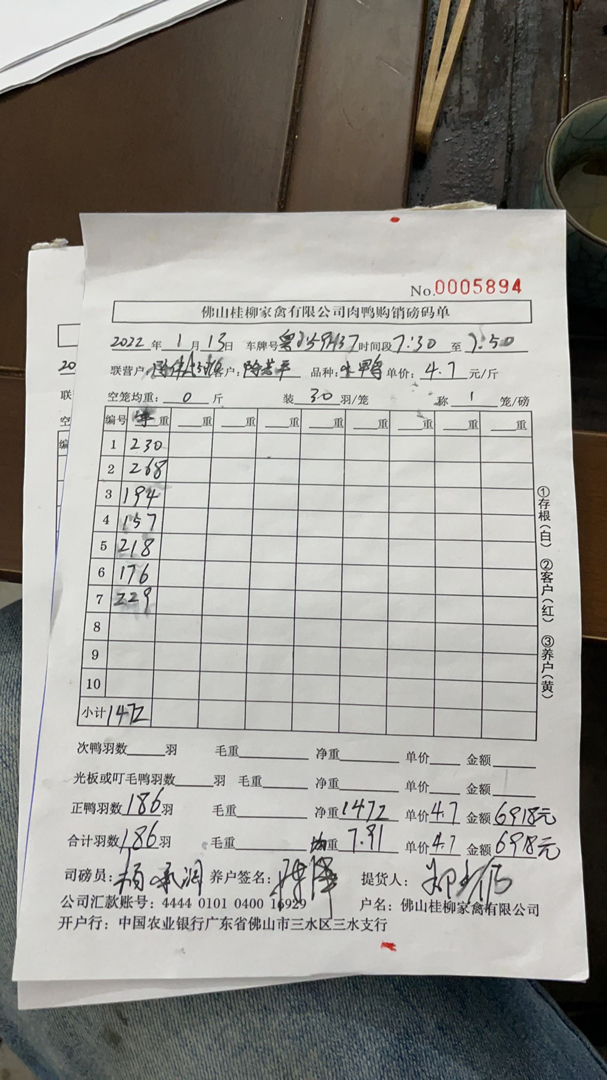 No.0005894
佛山桂柳家禽有限公司肉鸭购销磅码单
2022 年 1 月 13 日 车牌号 时间段 7:30 至 7:50
联营户: 客户: 品种: 单价: 4.7 元/斤
空笼均重: 0 斤 装 30 羽/笼 称 1 笼/磅
编号 重 重 重 重 重 重 重 重 重
1 230
2 268
3 194
4 157
5 218
6 176
7 229
8
9
10
小计 1472
①存根(白) ②客户(红) ③养户(黄)
次鸭羽数 羽 毛重 净重 单价 金额
光板或叮毛鸭羽数 羽 毛重 净重 单价 金额
正鸭羽数 186 羽 毛重 净重 1472 单价 4.7 金额 6918元
合计羽数 186 羽 毛重 均重 7.91 单价 4.7 金额 6918元
司磅员: 养户签名: 提货人:
公司汇款账号: 4444 0101 0400 16929 户名: 佛山桂柳家禽有限公司
开户行: 中国农业银行广东省佛山市三水区三水支行